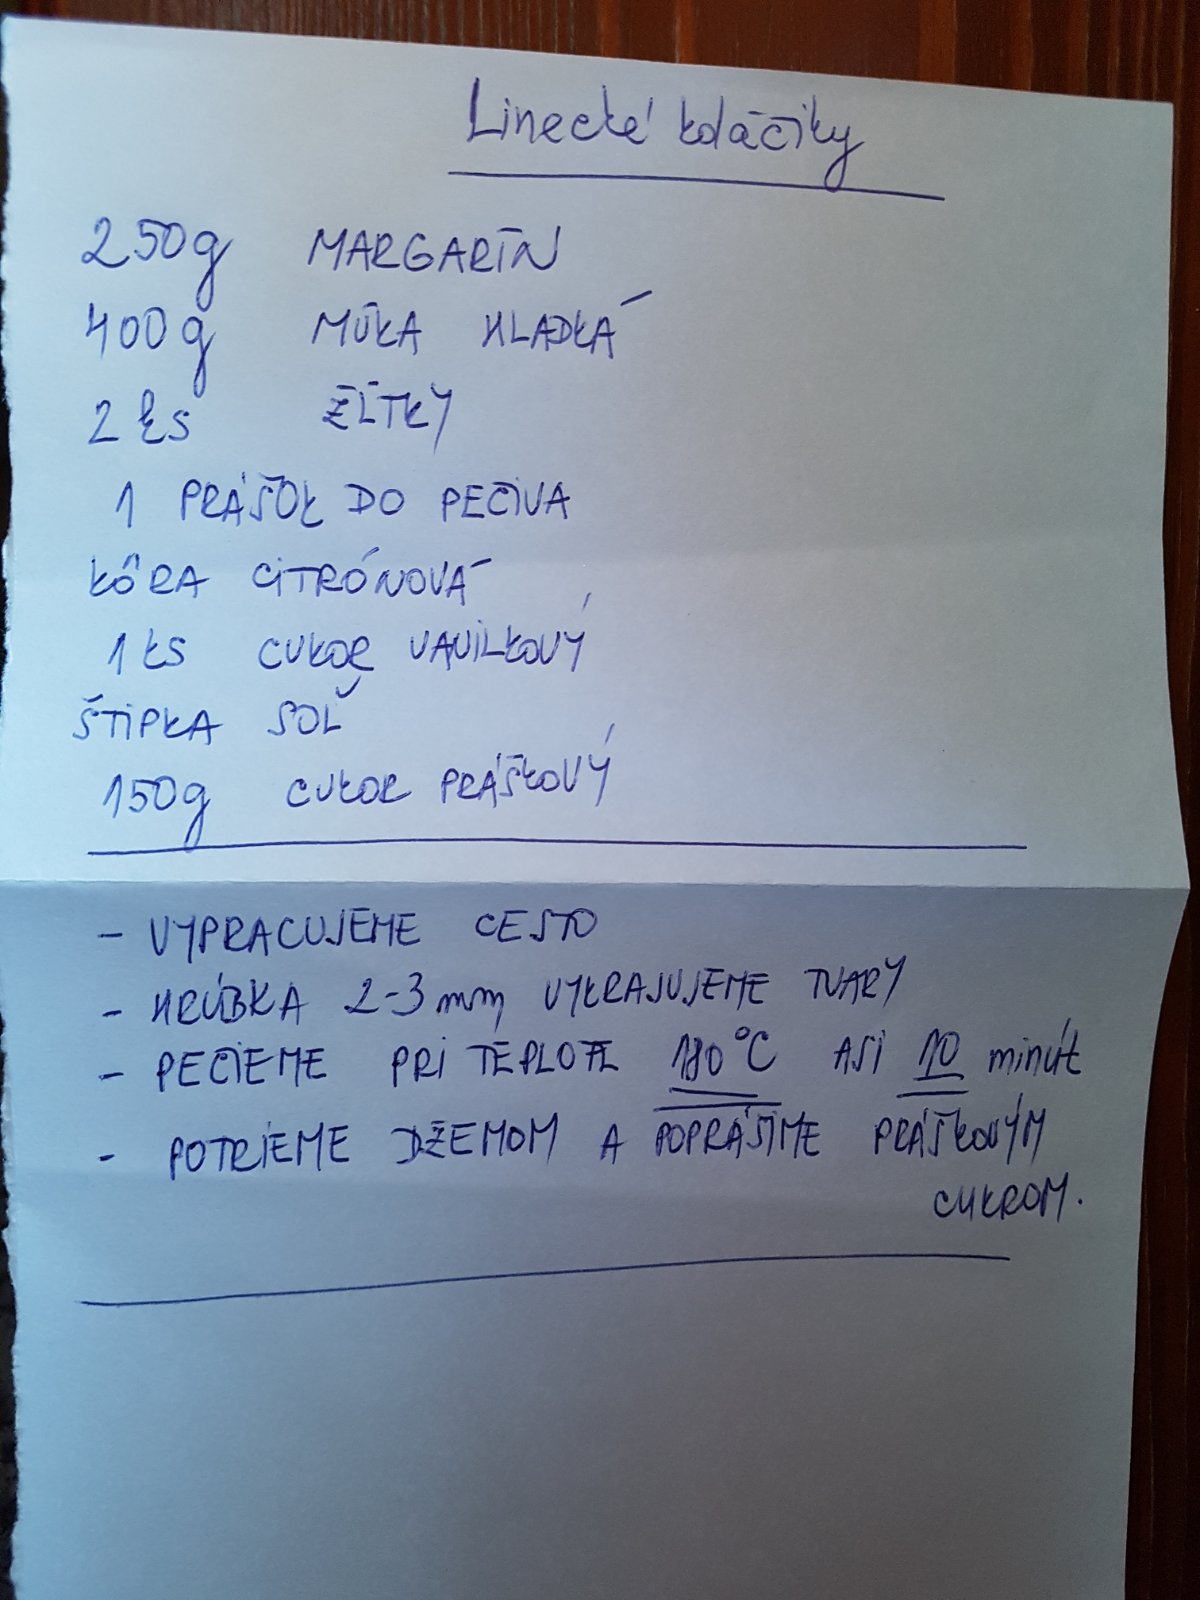 Linecké koláčiky
250g MARGARÍN
400g MÚKA HLADKÁ
2 ks ŽĹTKY
1 PRÁŠOK DO PEČIVA
KÔRA CITRÓNOVÁ
1 KS CUKOR VANILKOVÝ
ŠTIPKA SOĽ
150g CUKOR PRÁŠKOVÝ
- VYPRACUJEME CESTO
- HRÚBKA 2-3 mm VYKRAJUJEME TVARY
- PEČIEME PRI TEPLOTE 180°C ASI 10 minút
- POTRIEME DŽEMOM A POPRÁŠIME PRÁŠKOVÝM
CUKROM.